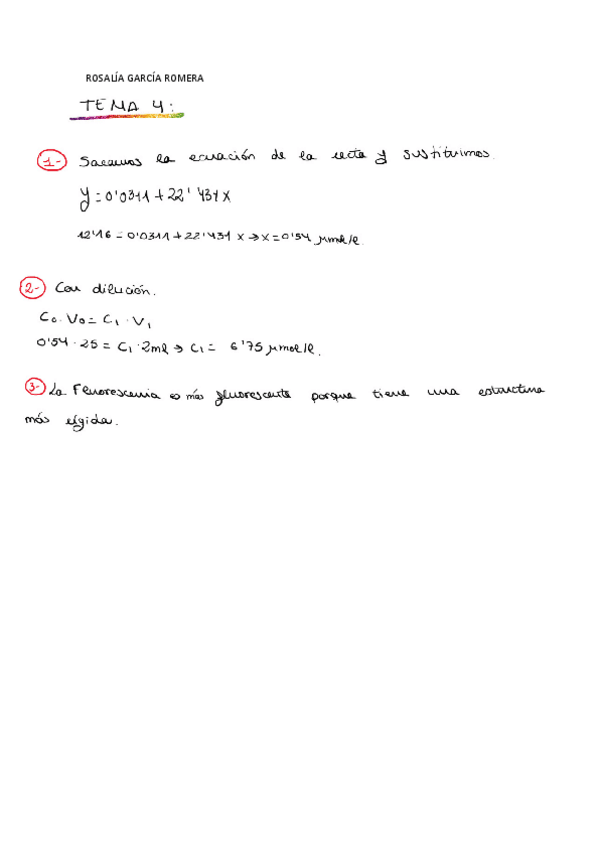 ROSALÍA GARCÍA ROMERA
TEMA 4:
1- Sacamos la ecuación de la recta y sustituimos.
y = 0'0311 + 22'431 x
12'16 = 0'0311 + 22'431 x → x = 0'54 μmol/l.
2- Con dilución.
C₀ · V₀ = C₁ · V₁
0'54 · 25 = C₁ · 2ml → C₁ = 6'75 μmol/l.
3- La Fluoresceina es más fluorescente porque tiene una estructura
más rígida.